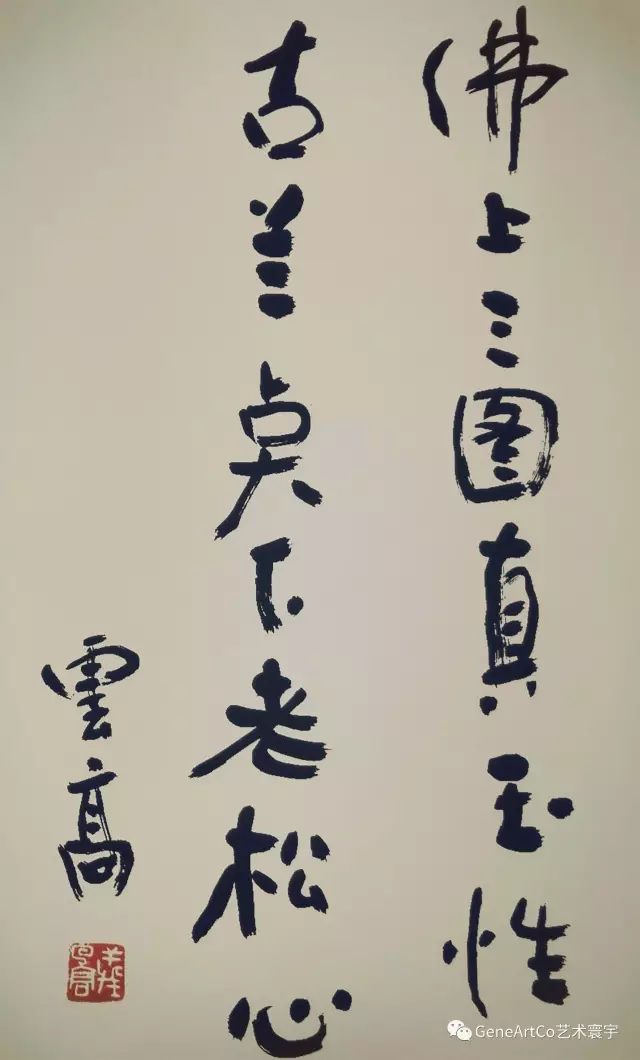 佛上三图真玉性
古兰奌下老松心
雲高
GeneArtCo艺术寰宇